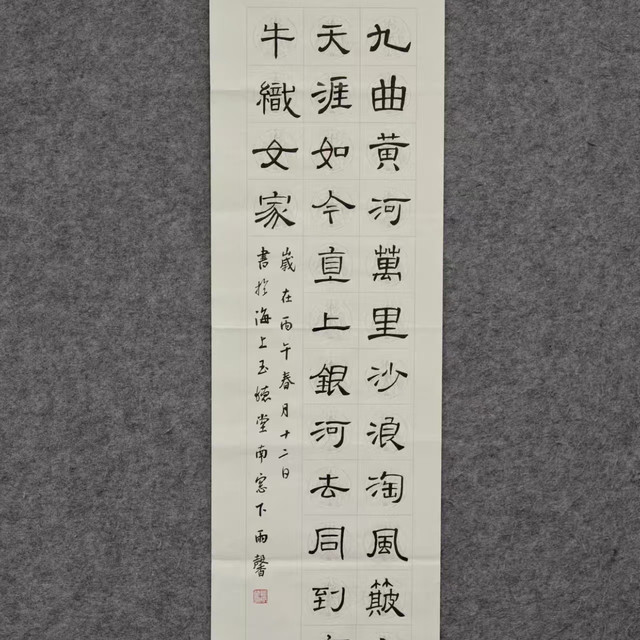 九曲黃河萬里沙浪淘風簸
天涯如今直上銀河去同到
牛織女家
歲在丙午春月十二日
書於海上玉德堂南窗下雨馨